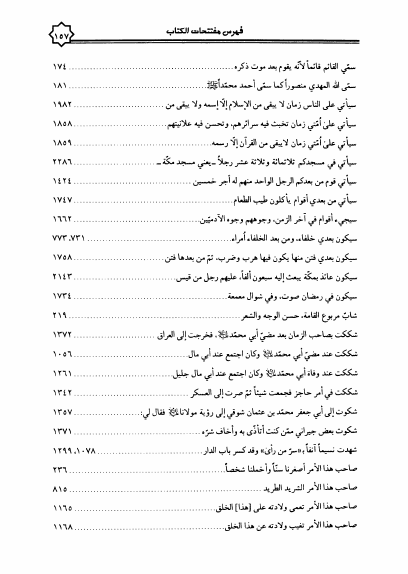 فهرس مفتتحات الكتاب
١٥٧
سمّي القائم قائماً لأنّه يقوم بعد موت ذكره ........ ١٧٤
سمّى الله المهدي منصوراً كما سمّى أحمد محمّداًﷺ ........ ١٨١
سيأتي على الناس زمان لا يبقى من الإسلام إلّا إسمه ولا يبقى من ........ ١٩٨٢
سيأتي على أمّتي زمان تخبث فيه سرائرهم، وتحسن فيه علانيتهم ........ ١٨٥٨
سيأتي على أمّتي زمان لايبقى من القرآن إلّا رسمه ........ ١٨٥٩
سيأتي في مسجدكم ثلاثمائة وثلاثة عشر رجلاً ـ يعني مسجد مكّة ـ ........ ٢٢٨٦
سيأتي قوم من بعدكم الرجل الواحد منهم له أجر خمسين ........ ١٤٢٤
سيأتي من بعدي أقوام يأكلون طيب الطعام ........ ١٧٤٧
سيجيء أقوام في آخر الزمن، وجوههم وجوه الآدميّين ........ ١٦٦٢
سيكون بعدي خلفاء، ومن بعد الخلفاء أُمراء ........ ٧٣١، ٧٧٣
سيكون بعدي فتن منها يكون فيها هرب وضرب، ثمّ من بعدها فتن ........ ١٧٥٨
سيكون عائذ بمكّة يبعث إليه سبعون ألفاً، عليهم رجل من قيس ........ ٢١٤٣
سيكون في رمضان صوت، وفي شوال معمعة ........ ١٧٣٤
شابّ مربوع القامة، حسن الوجه والشعر ........ ٢١٩
شككت بصاحب الزمان بعد مضيّ أبي محمّد، فخرجت إلى العراق ........ ١٣٧٢
شككت عند مضيّ أبي محمّد وكان اجتمع عند أبي مال ........ ١٠٥٦
شككت عند وفاة أبي محمّد وكان اجتمع عند أبي مال جليل ........ ١٢٦١
شككت في أمر حاجز فجمعت شيئاً ثمّ صرت إلى العسكر ........ ١٣٤٢
شكوت إلى أبي جعفر محمّد بن عثمان شوقي إلى رؤية مولانا فقال لي: ........ ١٣٥٧
شكوت بعض جيراني ممّن كنت أتأذّى به وأخاف شرّه ........ ١٣٧١
شهدت نسيماً آنفاً بـ«سرّ من رأى» وقد كسر باب الدار ........ ١٠٧٨، ١٢٩٩
صاحب هذا الأمر أصغرنا سنّاً وأخملنا شخصاً ........ ٢٣٦
صاحب هذا الأمر الشريد الطريد ........ ٨١٥
صاحب هذا الأمر تعمى ولادته على [هذا] الخلق ........ ١١٦٥
صاحب هذا الأمر تغيب ولادته عن هذا الخلق ........ ١١٦٨